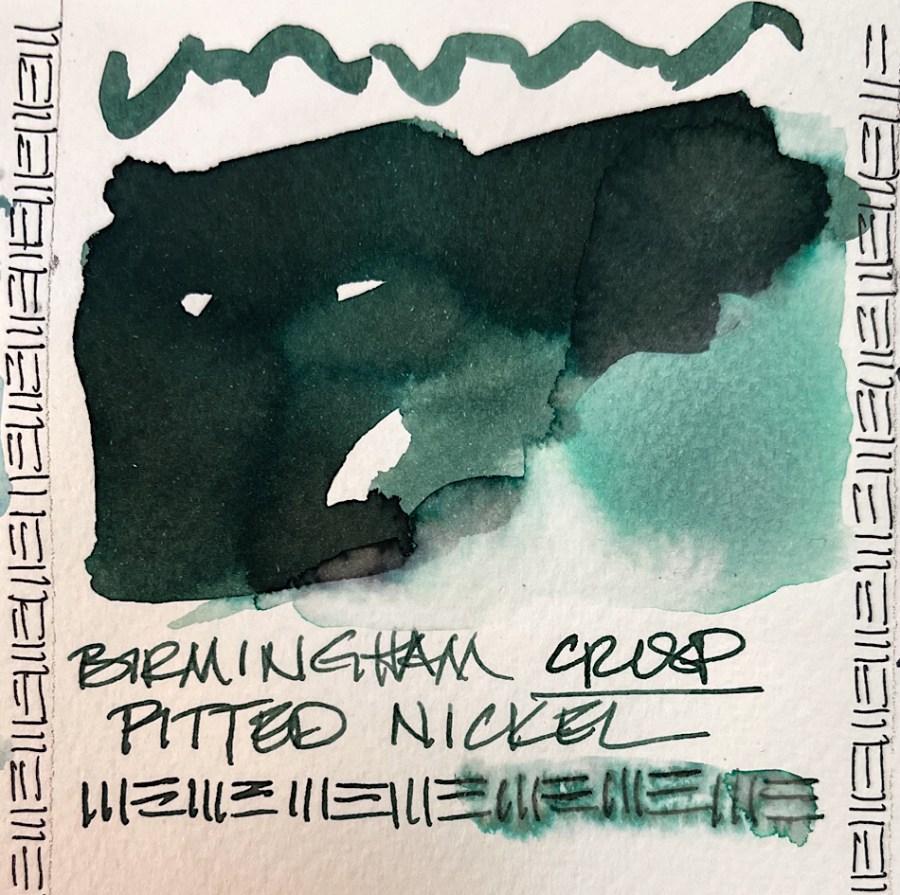 BIRMINGHAM CRISP
PITTED NICKEL